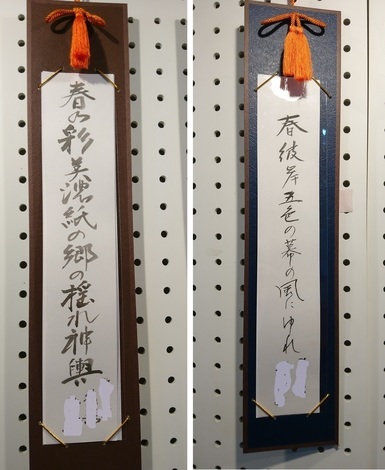 春の彩美濃紙の郷の揺れ神輿
春彼岸五色の幕の風にゆれ